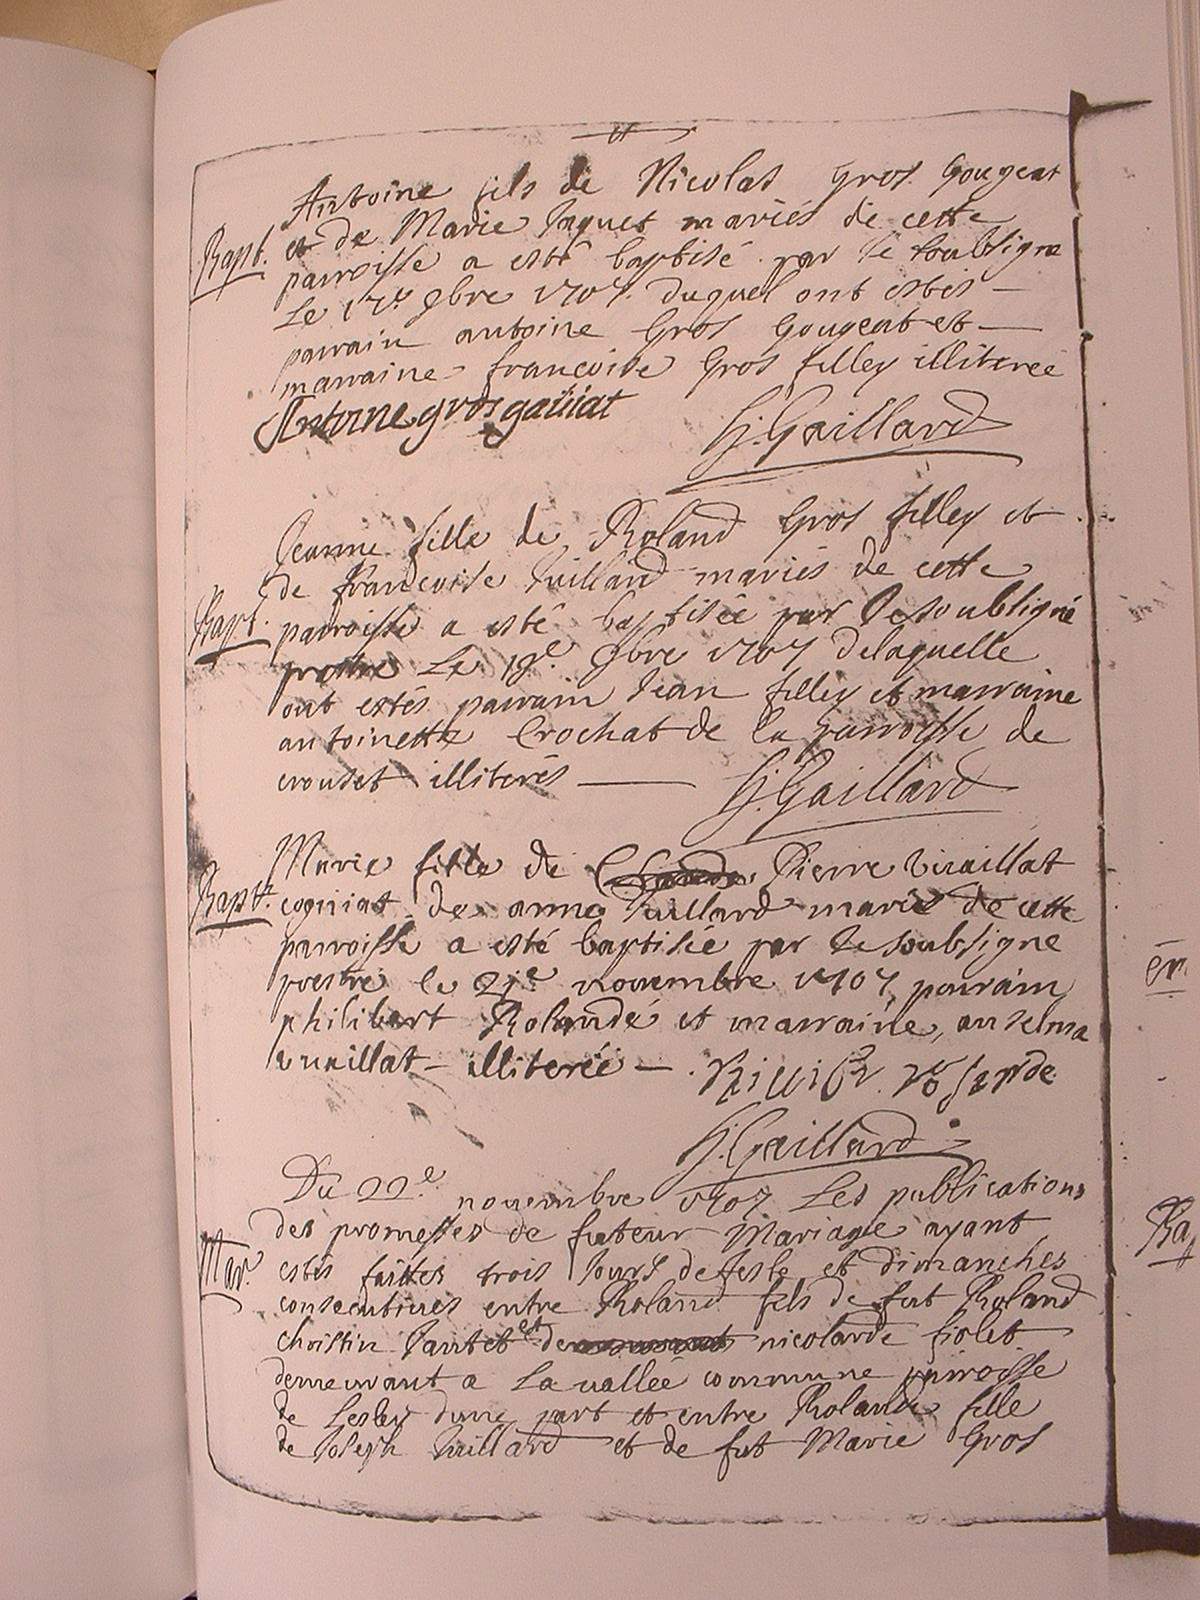 et
Antoine fils de Nicolas Gros Gougeat
Bapt. et de Marie Jaquet mariés de cette
parroisse a esté baptisé par le soubsigne
Le 17e 9bre 1707 duquel ont estés
parrain antoine Gros Gougeat et
marraine francoise Gros filley illiterée
Antoine gros gauiat
G. Gaillard
Jeanne fille de Roland Gros filley et
de francoise Vuillard mariés de cette
Bapt. parroisse a esté baptisée par le soubsigné
prestre Le 18e 9bre 1707 de laquelle
ont estés parrain Jean filley et marraine
antoinette Crochat de la parroisse de
crouset illiterés
G. Gaillard
Marie fille de Pierre Vuaillat
Bapt. cogniat de anne Vuillard mariés de cette
parroisse a esté baptisée par le soubsigne
prestre le 21e novembre 1707 parrain
philibert Rolande et marraine anselma
vuaillat illiterée
G. Gaillard
Du 22e novembre 1707 Les publications
des promesses de futeur Mariage ayant
Mar. estés faittes trois Jours de feste et dimanches
consecutives entre Roland fils de fut Roland
christin et de nicolarde fiolet
demeurant a La vallée commune parroisse
de Lesley dune part et entre Rolande fille
de Joseph Vuillard et de fut Marie Gros